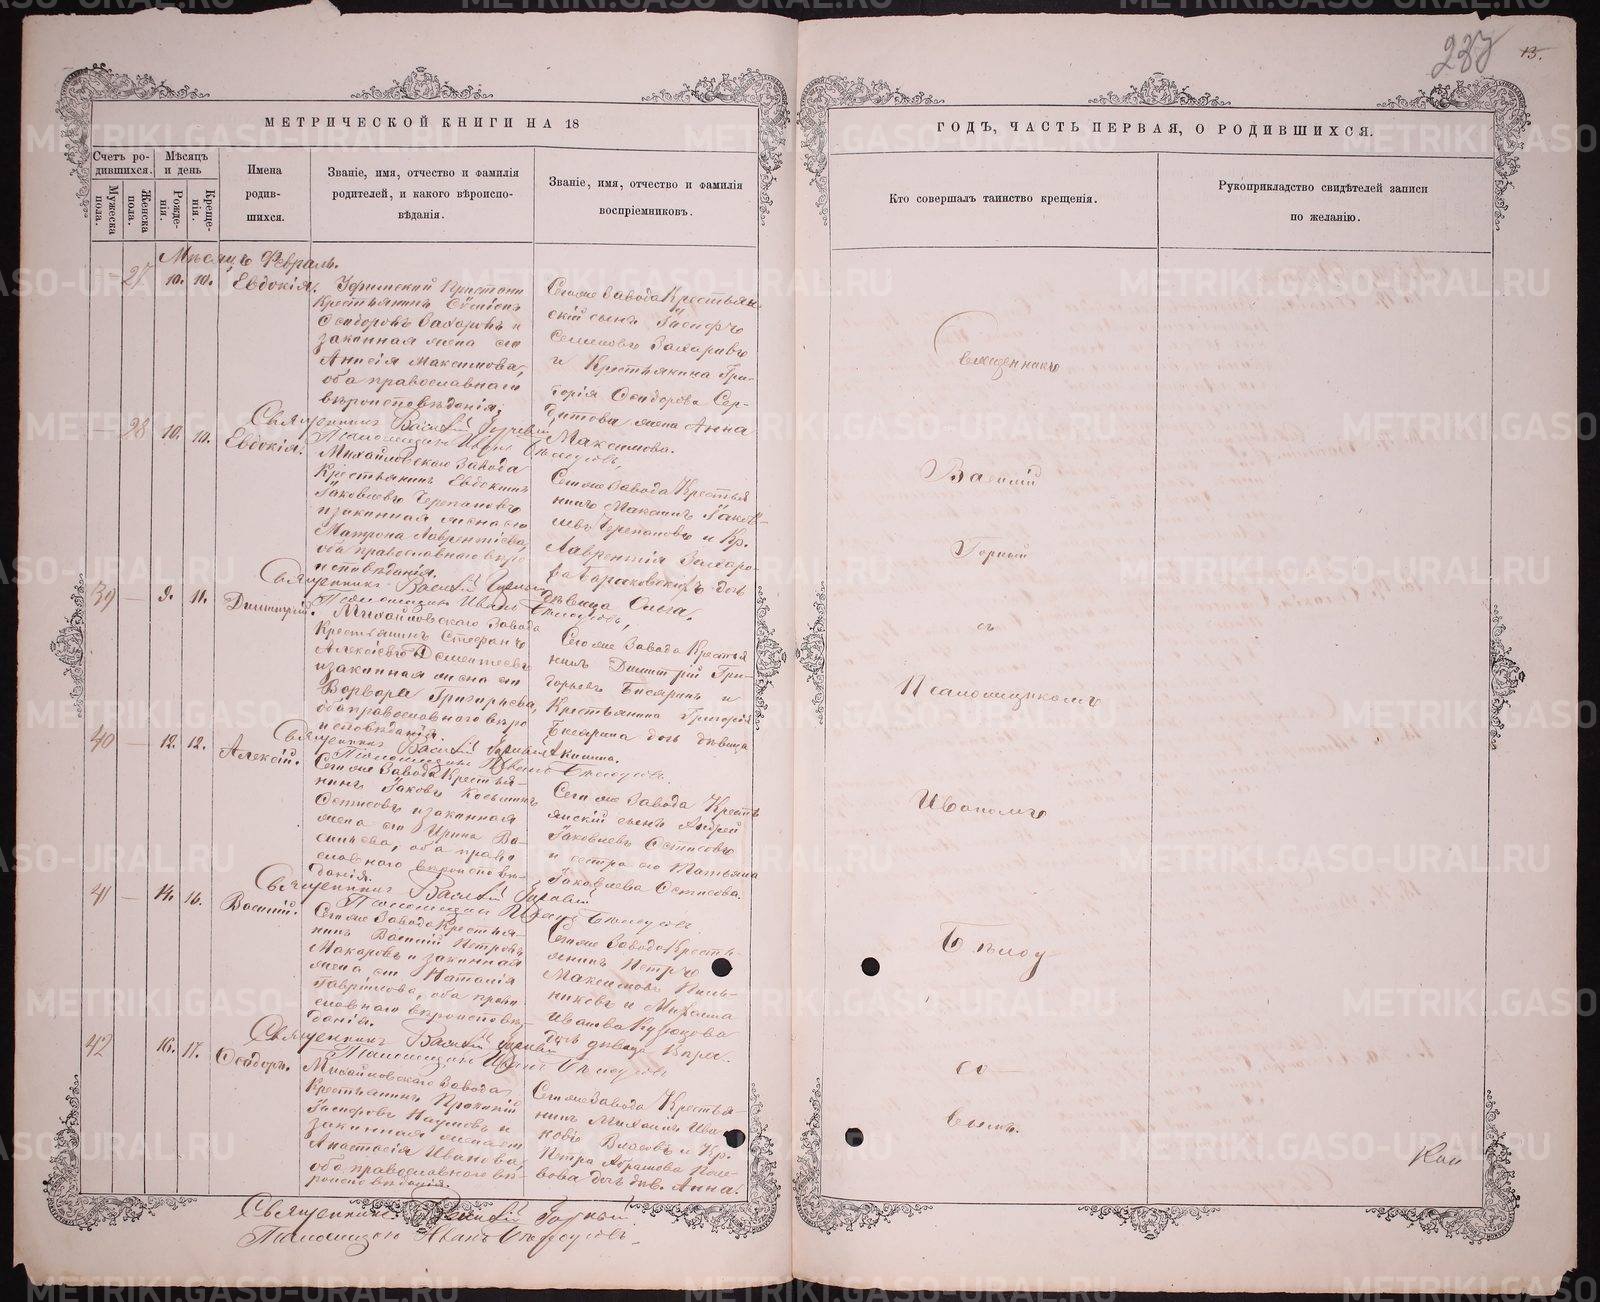 237
13.
МЕТРИЧЕСКОЙ КНИГИ НА 18
ГОДЪ, ЧАСТЬ ПЕРВАЯ, О РОДИВШИХСЯ.
Счетъ ро-
дившихся.
Мужеска
пола.
Женска
пола.
Мѣсяцъ
и день
Рожде-
нія.
Креще-
нія.
Имена
родив-
шихся.
Званіе, имя, отчество и фамилія
родителей, и какого вѣроиспо-
вѣданія.
Званіе, имя, отчество и фамилія
воспріемниковъ.
Кто совершалъ таинство крещенія.
Рукоприкладство свидѣтелей записи
по желанію.
Мѣсяцъ Февраль.
— 27 10. 10. Евдокія.
Крестьянинъ
Сидоровъ Захаровъ и
законная жена его
Анисія Максимова,
оба православнаго
вѣроисповѣданія.
Сегоже Завода Крестьян-
скій сынъ
Семеновъ Захаровъ
и Крестьянина Гри-
горія Сидорова Сер-
жена Анна
Максимова.
Священникъ Василій Горный
Псаломщикъ Иванъ Бѣлоусовъ,
— 28 10. 10. Евдокія.
Михайловскаго Завода
Крестьянинъ Евдокимъ
Яковлевъ Черепановъ
и законная жена его
Матрона Лаврентіева,
оба православнаго вѣро
исповѣданія.
Сегоже Завода Крестья
нинъ Максимъ Яков-
левъ Черепановъ и Кр.
Лаврентія Захаро-
дочь
дѣвица Ольга.
Священникъ Василій Горный
Псаломщикъ Иванъ Бѣлоусовъ,
39 — 9. 11. Димитрій.
Михайловскаго Завода
Крестьянинъ Стефанъ
Алексіевъ Дементьевъ
и законная жена его
Варвара Григорьева,
оба православнаго вѣро
исповѣданія.
Сегоже Завода Крестья
нинъ Димитрій Гри-
горьевъ и
Крестьянина Григорія
дочь дѣвица
Акилина.
Священникъ Василій Горный
Псаломщикъ Иванъ Бѣлоусовъ.
40 — 12. 12. Алексій.
Сегоже Завода Крестья-
нинъ Яковъ Косьминъ
и законная
жена его Ирина Ва-
сильева, оба право
славнаго вѣроисповѣ-
данія.
Сегоже Завода Кресть
янскій сынъ Андрей
Яковлевъ
и сестра его Татьяна
Яковлева
Священникъ Василій Горный
Псаломщикъ Иванъ Бѣлоусовъ.
41 — 14. 16. Василій.
Сегоже Завода Крестья-
нинъ Василій Петровъ
Макаровъ и законная
жена его Наталія
Гавріилова, оба право
славнаго вѣроисповѣ-
данія.
Сегоже Завода Кресть-
янинъ Петръ
Максимовъ Пиль-
никовъ и Михаила
Иванова Кузнецова
дочь дѣвица Вѣра.
Священникъ Василій Горный
Псаломщикъ Иванъ Бѣлоусовъ
42 16. 17. Ѳеодоръ.
Михайловскаго Завода
Крестьянинъ Прокопій
Наумовъ и
законная жена его
Анастасія Иванова,
оба православнаго вѣ-
роисповѣданія.
Сегоже Завода Крестья-
нинъ Михаилъ Ива-
новъ Власовъ и Кр.
Петра Абрамова
дочь дѣв. Анна.
Священникъ Василій Горный
Псаломщикъ Иванъ Бѣлоусовъ.
Священникъ
Василій
Горный
съ
Псаломщикомъ
Иваномъ
Бѣлоу
со
вымъ.
METRIKI.GASO-URAL.RU